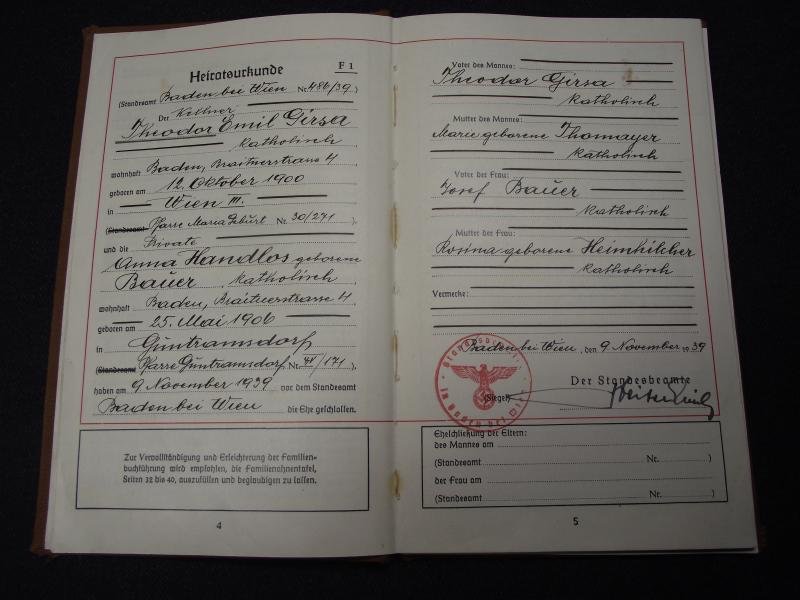 Heiratsurkunde F 1
(Standesamt Baden bei Wien Nr. 486/39)
Der Kellner
Theodor Emil Girsa
Katholisch
wohnhaft Baden, Braitnerstrasse 4
geboren am 12. Oktober 1900
in Wien III.
(Standesamt Pfarre Maria Geburt Nr. 30/271)
und die Private
Anna Handlos geborene
Bauer, Katholisch
wohnhaft Baden, Braitnerstrasse 4
geboren am 25. Mai 1906
in Guntramsdorf
(Standesamt Pfarre Guntramsdorf, Nr. 44/171)
haben am 9. November 1939 vor dem Standesamt
Baden bei Wien die Ehe geschlossen.
Zur Vervollständigung und Erleichterung der Familien-
buchführung wird empfohlen, die Familienahnentafel,
Seiten 32 bis 40, auszufüllen und beglaubigen zu lassen.
4
Vater des Mannes:
Theodor Girsa
Katholisch
Mutter des Mannes:
Marie geborene Thomayer
Katholisch
Vater der Frau:
Josef Bauer
Katholisch
Mutter der Frau:
Rosina geborene Heimhilcher
Katholisch
Vermerke:
Baden bei Wien, den 9. November 1939
Der Standesbeamte
(Siegel)
Eheschließung der Eltern:
des Mannes am
(Standesamt Nr. )
der Frau am
(Standesamt Nr. )
5